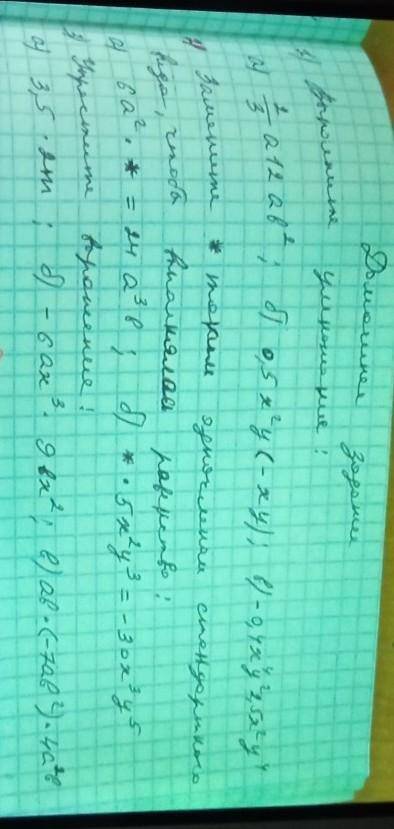 Домашнее задание
1) Выполните умножение:
а) 2/3 a 12 ab²; б) 0,5x²y(-xy); в) -0,4x⁴y² 2,5x²y⁴
2) Замените * таким одночленом стандартного
вида, чтобы выполнялось равенство:
а) 6a² · * = 24a³b; б) * · 5x²y³ = -30x³y⁵
3) Упростите выражение:
а) 3,5 · 2m; б) -6ax³ · 9bx²; в) ab · (-7ab²) · 4a²b